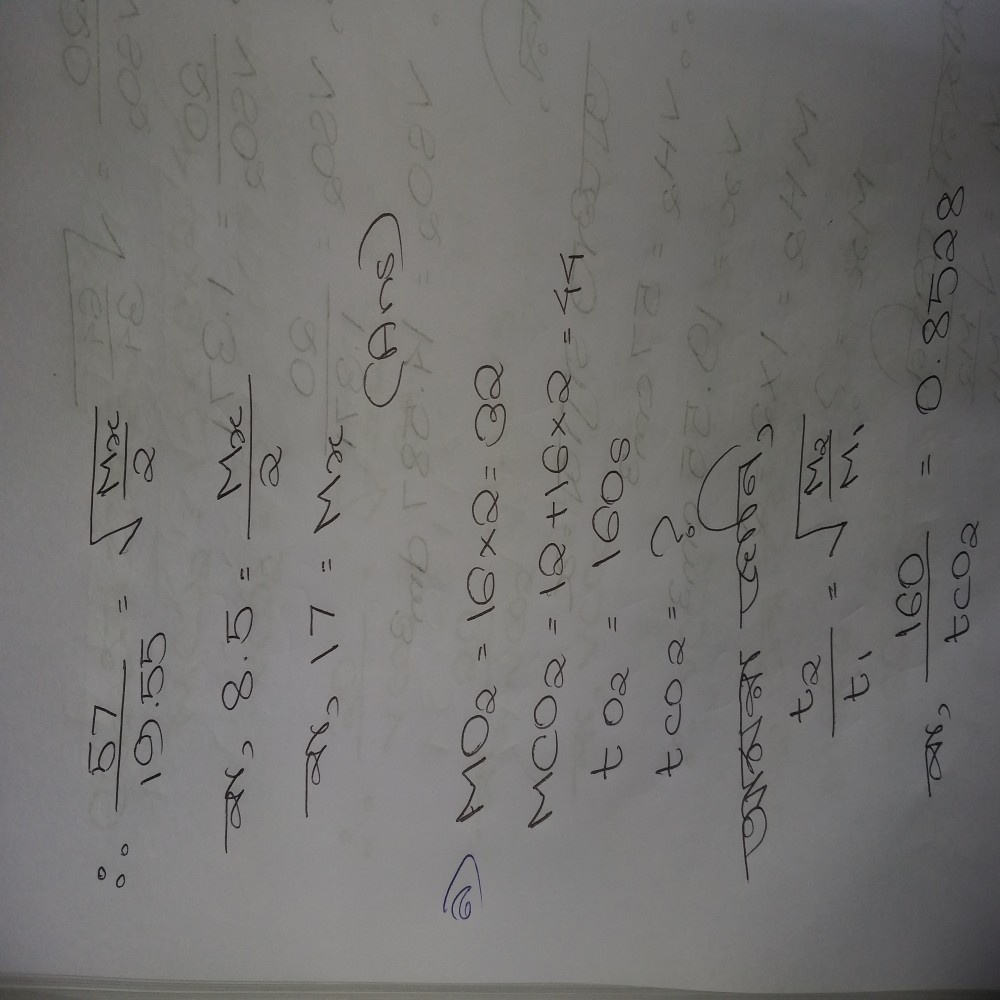 ∴ 57/19.55 = √(Mx/2)
বা, 8.5 = Mx/2
বা, 17 = Mx
(Ans)
MO₂ = 16×2 = 32
MCO₂ = 12+16×2 = 44
tO₂ = 160s
tCO₂ = ?
t₂/t₁ = √(M₂/M₁)
বা, 160/tCO₂ = 0.8528